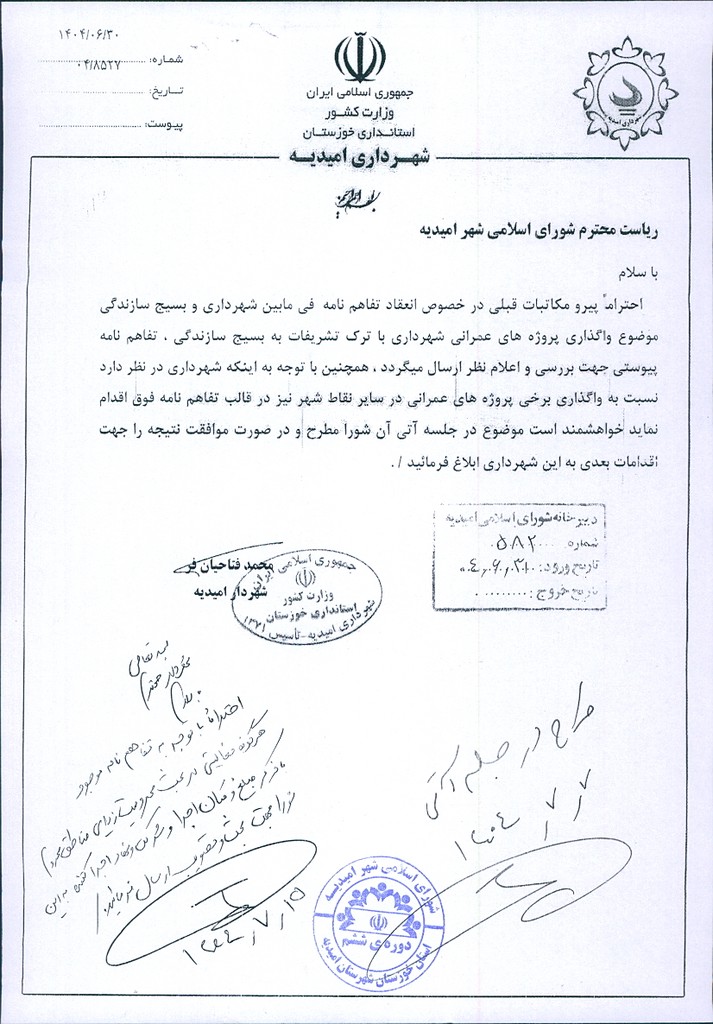 ۱۴۰۴/۰۶/۳۰
شماره:
۰۴/۸۵۲۷
تـاریخ:
پیوست:
جمهوری اسلامی ایران
وزارت کشـور
استانداری خوزستـان
شهـرداری امیدیـه
ریاست محترم شورای اسلامی شهر امیدیه
با سلام
احتراماً پیرو مکاتبات قبلی در خصوص انعقاد تفاهم نامه فی مابین شهرداری و بسیج سازندگی
موضوع واگذاری پروژه های عمرانی شهرداری با ترک تشریفات به بسیج سازندگی ، تفاهم نامه
پیوستی جهت بررسی و اعلام نظر ارسال میگردد ، همچنین با توجه به اینکه شهرداری در نظر دارد
نسبت به واگذاری برخی پروژه های عمرانی در سایر نقاط شهر نیز در قالب تفاهم نامه فوق اقدام
نماید خواهشمند است موضوع در جلسه آتی آن شورا مطرح و در صورت موافقت نتیجه را جهت
اقدامات بعدی به این شهرداری ابلاغ فرمائید /.
دبیرخانه شورای اسلامی امیدیه
شماره ۵۸۲
تاریخ ورود:
تاریخ خروج:
محمد فتاحیان فر
شهردار امیدیه
جمهوری اسلامی ایران
وزارت کشور
استانداری خوزستان
شهرداری امیدیه-تأسیس ۱۳۷۱
طرح در جلسه آتی
۱۴۰۴/۷/۷
بسمه تعالی
شهردار محترم
احتراماً با توجه به تفاهم نامه موجود
هرگونه فعالیتی در بحث محرومیت زدایی مناطق محروم
با ذکر مبلغ و مکان اجرا و اجرا کننده به این
شورا جهت بحث و تصویب ارسال فرمائید.
۱۴۰۴/۷/۱۵
شورای اسلامی شهر امیدیـه
دوره‌ی ششم
استان خوزستان شهرستان امیدیه